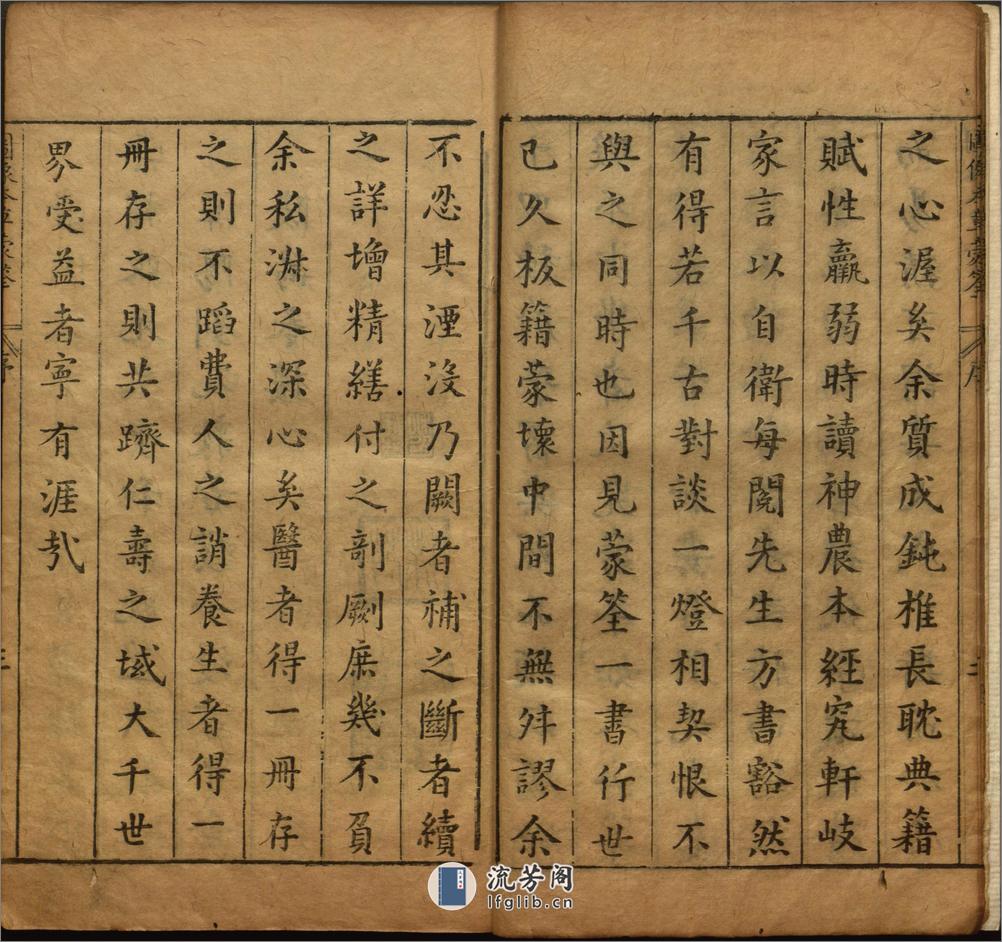 之心渥矣余質成鈍椎長耽典籍
賦性羸弱時讀神農本經究軒岐
家言以自衛每閱先生方書豁然
有得若千古對談一燈相契恨不
與之同時也因見蒙筌一書行世
已久板籍蒙壞中間不無舛謬余
不忍其湮沒乃闕者補之斷者續
之詳增精繕付之剞劂庶幾不負
余私淑之深心矣醫者得一冊存
之則不蹈費人之誚養生者得一
冊存之則共躋仁壽之域大千世
界受益者寧有涯哉
流芳阁
lfglib.cn